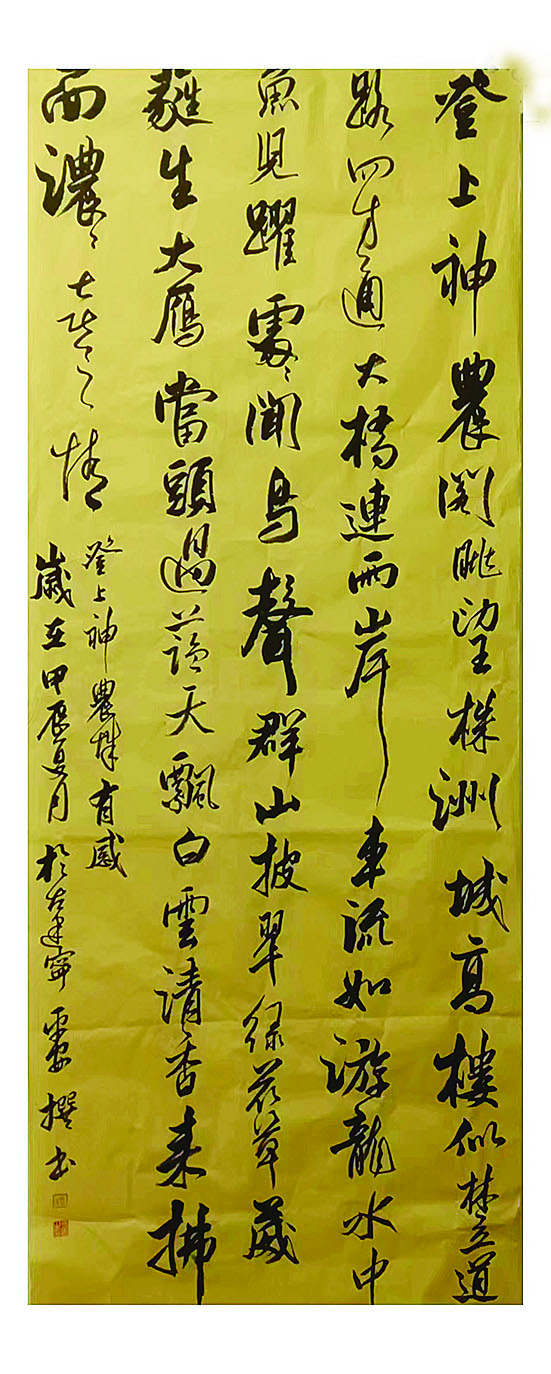 登上神農閣眺望株洲城高樓似林立道
路四方通大橋連兩岸車流如游龍水中
魚見躍處〻聞鳥聲群山披翠綠花草葳
蕤生大雁當頭過藍天飄白雲清香來拂
面濃〻情
登上神農城有感
歲在甲辰夏月於古建寧撰书